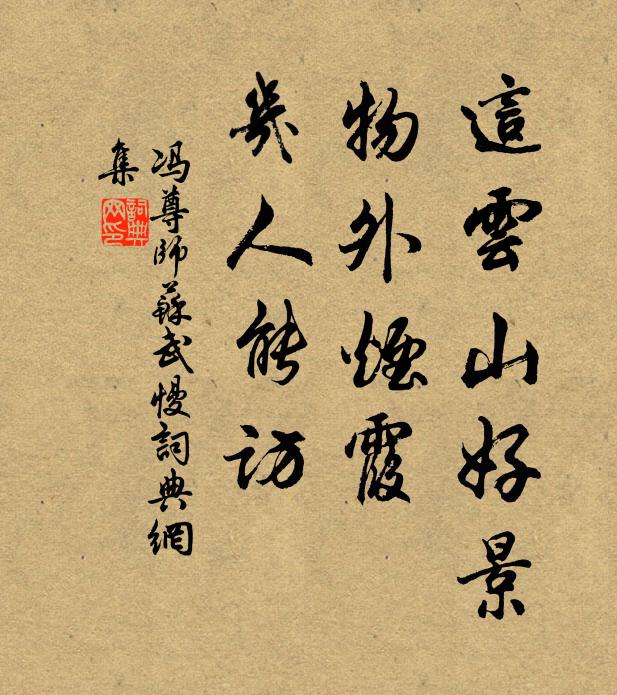 這雲山好景
物外煙霞
幾人能訪
冯尊師蘇武慢詞典網
集
詞典網印